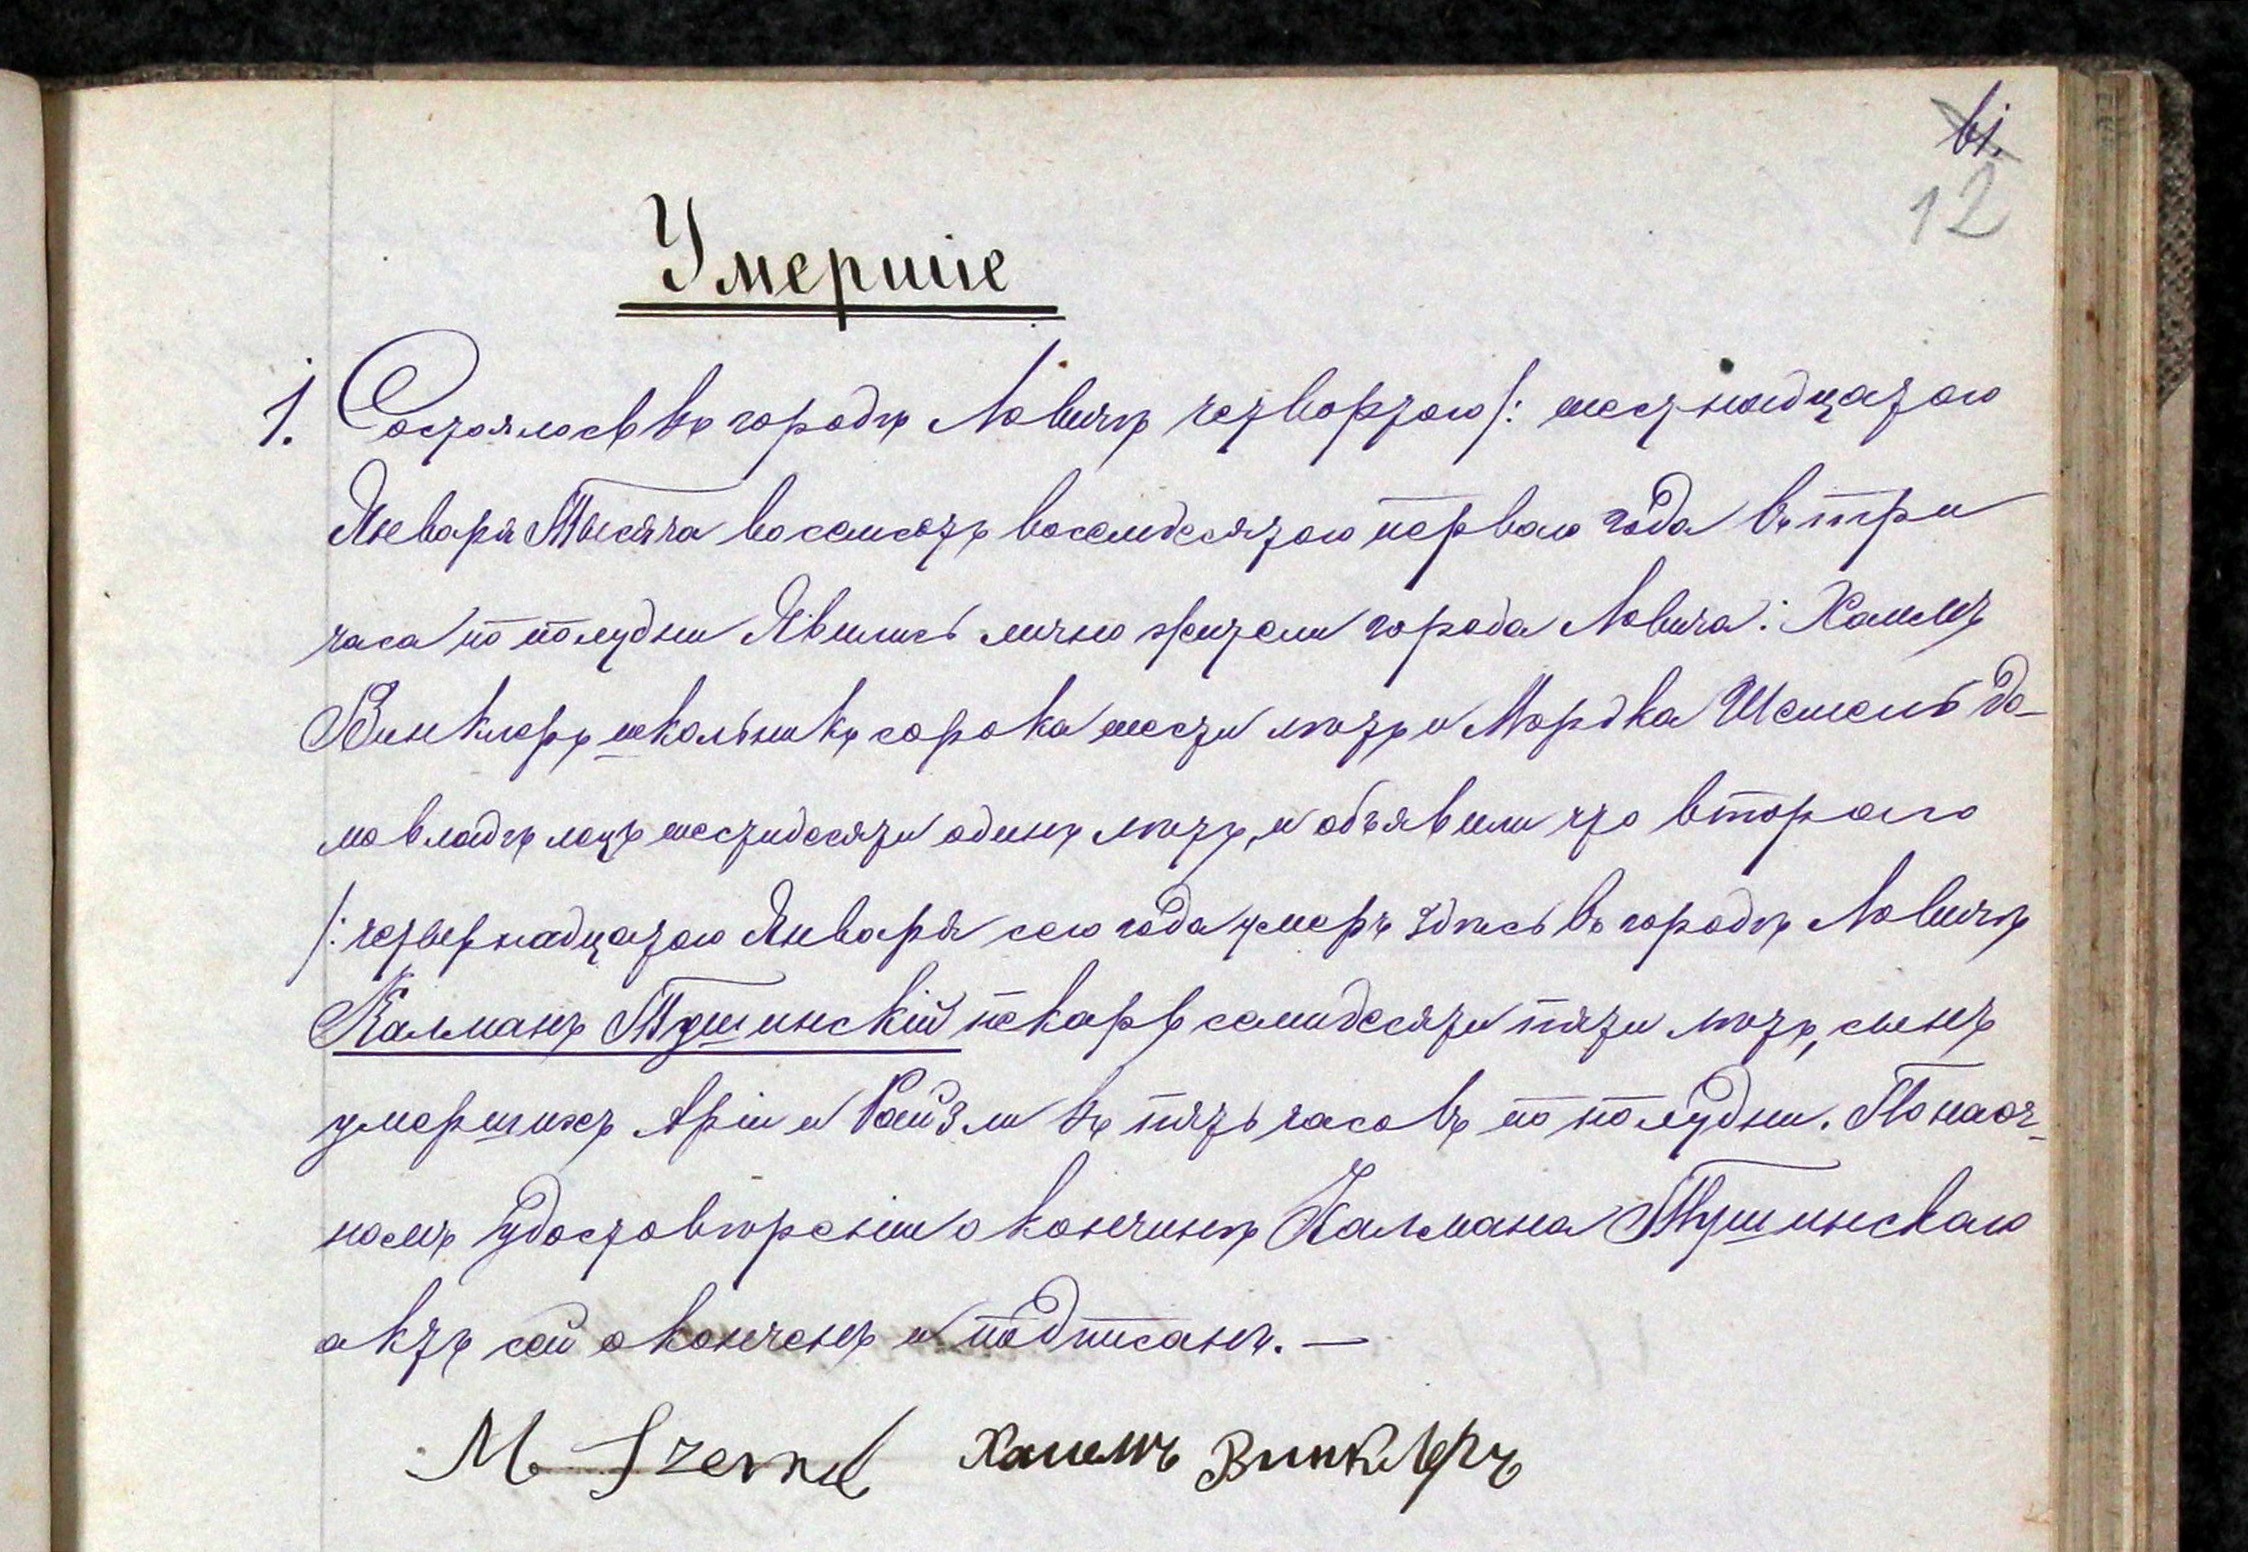 12
Умершіе
1. Состоялось въ городѣ Ловичѣ четвортаго /: шестнадцатаго
Января Тысяча восемсотъ восемдесятаго перваго года въ три
часа по полудни Явились лично жители города Ловича: Хаимъ
Винклеръ школьникъ сорока шести лѣтъ и Мордка Шемель до-
мовладѣлецъ шестидесяти одинъ лѣтъ, и объявили что второго
/: четвернадцатаго Января сего года умеръ здѣсь въ городѣ Ловичѣ
Калманъ Тушинскій пекарь семидесяти пяти лѣтъ, сынъ
умершихъ Аріи и Райзли въ пять часовъ по полудни. По наоч-
номъ удостовѣреніи о кончинѣ Кальмана Тушинскаго
актъ сей оконченъ и подписанъ. —
M Хаимъ Винклеръ